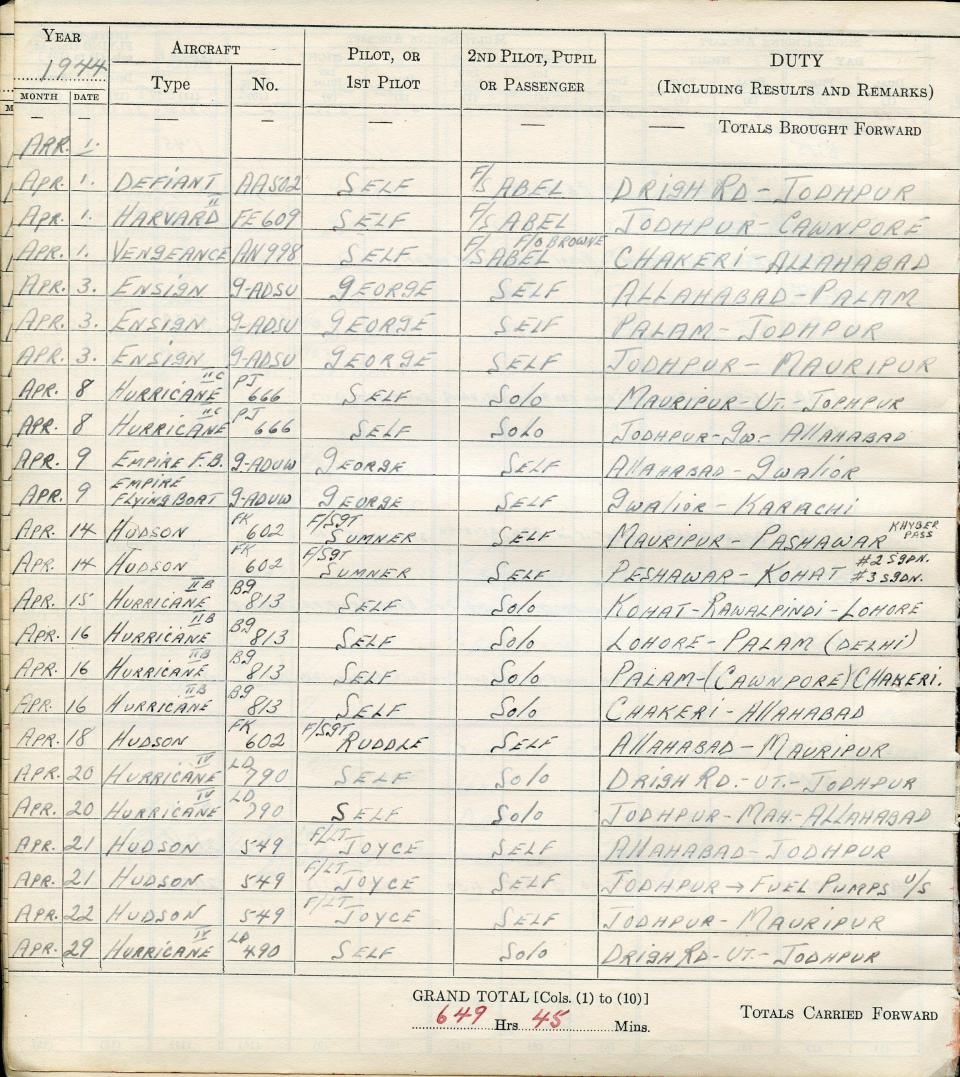 YEAR AIRCRAFT PILOT, OR 2ND PILOT, PUPIL DUTY
1944 Type No. 1ST PILOT OR PASSENGER (INCLUDING RESULTS AND REMARKS)
MONTH DATE
— — — — — — —— TOTALS BROUGHT FORWARD
APR. 1.
APR. 1. DEFIANT AA502 SELF F/S ABEL DRIGH RD - JODHPUR
APR. 1. HARVARD II FE609 SELF F/S ABEL JODHPUR - CAWNPORE
APR. 1. VENGEANCE AN998 SELF F/S ABEL F/O BROWNE CHAKERI - ALLAHABAD
APR. 3. ENSIGN G-ADSU GEORGE SELF ALLAHABAD - PALAM
APR. 3. ENSIGN G-ADSU GEORGE SELF PALAM - JODHPUR
APR. 3. ENSIGN G-ADSU GEORGE SELF JODHPUR - MAURIPUR
APR. 8 HURRICANE IIC PJ 666 SELF SOLO MAURIPUR - UT. - JOPHPUR
APR. 8 HURRICANE IIC PJ 666 SELF SOLO JODHPUR - GW. - ALLAHABAD
APR. 9 EMPIRE F.B. G-ADUW GEORGE SELF ALLAHABAD - GWALIOR
APR. 9 EMPIRE FLYING BOAT G-ADUW GEORGE SELF GWALIOR - KARACHI
APR. 14 HUDSON FK 602 F/SGT SUMNER SELF MAURIPUR - PASHAWAR KHYBER PASS
APR. 14 HUDSON FK 602 F/SGT SUMNER SELF PESHAWAR - KOHAT #2 SQDN. #3 SQDN.
APR. 15 HURRICANE IIB BG 813 SELF SOLO KOHAT - RAWALPINDI - LOHORE
APR. 16 HURRICANE IIB BG 813 SELF SOLO LOHORE - PALAM (DELHI)
APR. 16 HURRICANE IIB BG 813 SELF SOLO PALAM - (CAWNPORE) CHAKERI.
APR. 16 HURRICANE IIB BG 813 SELF SOLO CHAKERI - ALLAHABAD
APR. 18 HUDSON FK 602 F/SGT RUDDLE SELF ALLAHABAD - MAURIPUR
APR. 20 HURRICANE IV LD 790 SELF SOLO DRIGH RD. - UT. - JODHPUR
APR. 20 HURRICANE IV LD 790 SELF SOLO JODHPUR - MAH - ALLAHABAD
APR. 21 HUDSON 549 F/LT JOYCE SELF ALLAHABAD - JODHPUR
APR. 21 HUDSON 549 F/LT JOYCE SELF JODHPUR → FUEL PUMPS U/S
APR. 22 HUDSON 549 F/LT JOYCE SELF JODHPUR - MAURIPUR
APR. 29 HURRICANE IV LD 490 SELF SOLO DRIGH RD - UT. - JODHPUR
GRAND TOTAL [Cols. (1) to (10)]
649 Hrs 45 Mins. TOTALS CARRIED FORWARD